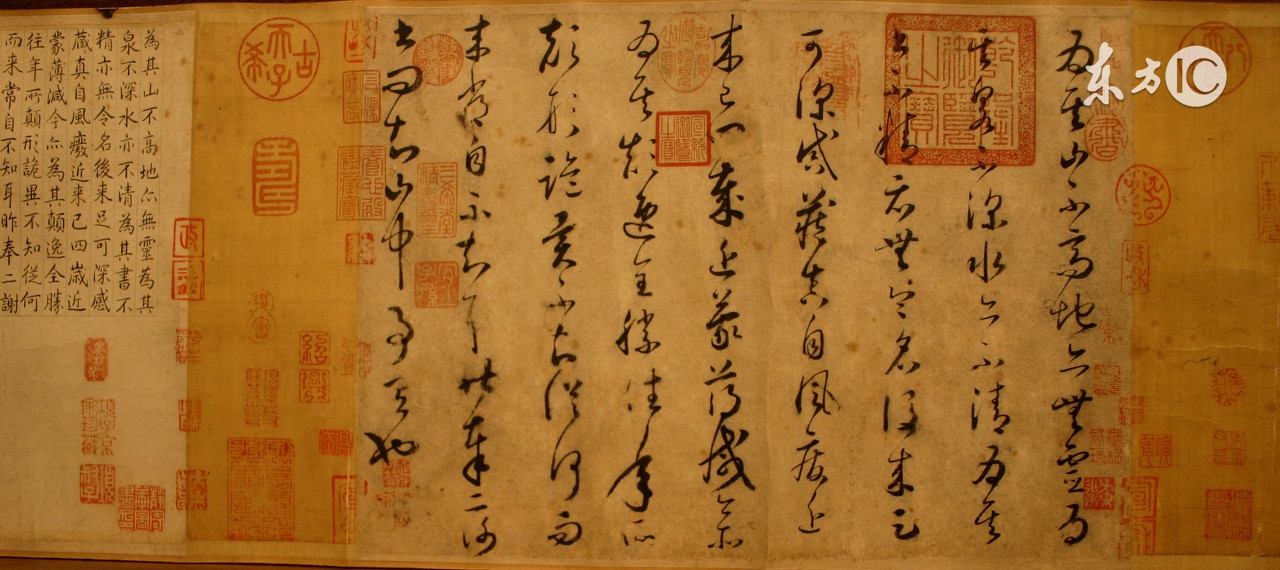 东方IC
為其山不高地亦無靈為
其泉不深水亦不清為其
書不精亦無令名後來足
可深感藏真自風癈近
來已四歲近蒙薄減今亦
為其顛逸全勝往年所
顛形詭異不知從何而
來常自不知耳昨奉二謝
書問知山中事有也
古希天子
為其山不高地亦無靈為其
泉不深水亦不清為其書不
精亦無令名後來足可深感
藏真自風癈近来已四歲近
蒙薄減今亦為其顛逸全勝
往年所顛形詭異不知從何
而来常自不知耳昨奉二謝